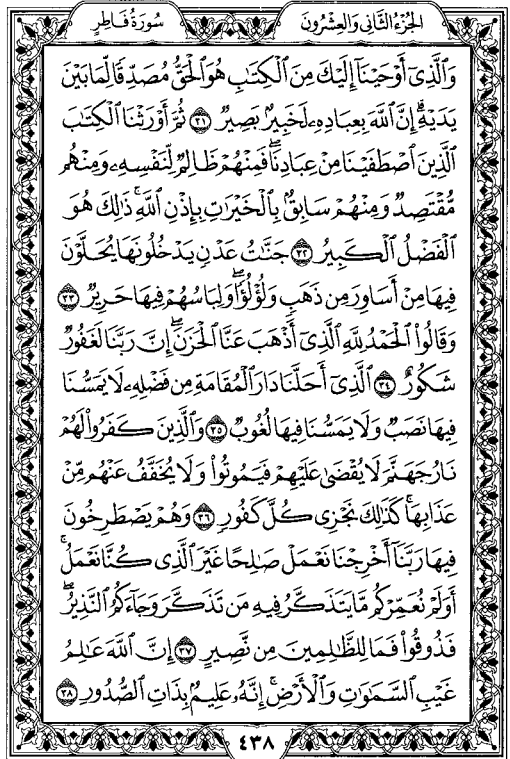 سُورَةُ فَاطِرٍ
الجُزْءُ الثَّانِي وَالْعِشْرُونَ
وَٱلَّذِىٓ أَوْحَيْنَآ إِلَيْكَ مِنَ ٱلْكِتَٰبِ هُوَ ٱلْحَقُّ مُصَدِّقًا لِّمَا بَيْنَ
يَدَيْهِ ۗ إِنَّ ٱللَّهَ بِعِبَادِهِۦ لَخَبِيرٌۢ بَصِيرٌ ٣١ ثُمَّ أَوْرَثْنَا ٱلْكِتَٰبَ
ٱلَّذِينَ ٱصْطَفَيْنَا مِنْ عِبَادِنَا ۖ فَمِنْهُمْ ظَالِمٌ لِّنَفْسِهِۦ وَمِنْهُم
مُّقْتَصِدٌ وَمِنْهُمْ سَابِقٌۢ بِٱلْخَيْرَٰتِ بِإِذْنِ ٱللَّهِ ۚ ذَٰلِكَ هُوَ
ٱلْفَضْلُ ٱلْكَبِيرُ ٣٢ جَنَّٰتُ عَدْنٍ يَدْخُلُونَهَا يُحَلَّوْنَ
فِيهَا مِنْ أَسَاوِرَ مِن ذَهَبٍ وَلُؤْلُؤًا ۖ وَلِبَاسُهُمْ فِيهَا حَرِيرٌ ٣٣
وَقَالُوا۟ ٱلْحَمْدُ لِلَّهِ ٱلَّذِىٓ أَذْهَبَ عَنَّا ٱلْحَزَنَ ۖ إِنَّ رَبَّنَا لَغَفُورٌ
شَكُورٌ ٣٤ ٱلَّذِىٓ أَحَلَّنَا دَارَ ٱلْمُقَامَةِ مِن فَضْلِهِۦ لَا يَمَسُّنَا
فِيهَا نَصَبٌ وَلَا يَمَسُّنَا فِيهَا لُغُوبٌ ٣٥ وَٱلَّذِينَ كَفَرُوا۟ لَهُمْ
نَارُ جَهَنَّمَ لَا يُقْضَىٰ عَلَيْهِمْ فَيَمُوتُوا۟ وَلَا يُخَفَّفُ عَنْهُم مِّنْ
عَذَابِهَا ۚ كَذَٰلِكَ نَجْزِى كُلَّ كَفُورٍ ٣٦ وَهُمْ يَصْطَرِخُونَ
فِيهَا رَبَّنَآ أَخْرِجْنَا نَعْمَلْ صَٰلِحًا غَيْرَ ٱلَّذِى كُنَّا نَعْمَلُ ۚ
أَوَلَمْ نُعَمِّرْكُم مَّا يَتَذَكَّرُ فِيهِ مَن تَذَكَّرَ وَجَآءَكُمُ ٱلنَّذِيرُ ۖ
فَذُوقُوا۟ فَمَا لِلظَّٰلِمِينَ مِن نَّصِيرٍ ٣٧ إِنَّ ٱللَّهَ عَٰلِمُ
غَيْبِ ٱلسَّمَٰوَٰتِ وَٱلْأَرْضِ ۚ إِنَّهُۥ عَلِيمٌۢ بِذَاتِ ٱلصُّدُورِ ٣٨
٤٣٨